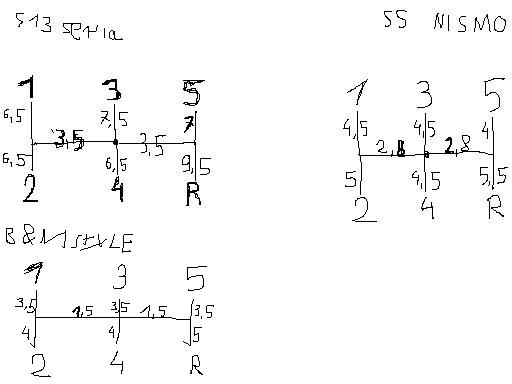 S13 seria
S5 NISMO
1 3 5
6,5 7,5 7
3,5 3,5
6,5 6,5 9,5
2 4 R
1 3 5
4,5 4,5 4
2,8 2,8
5 4,5 5,5
2 4 R
B&M STYLE
1 3 5
3,5 3,5 3,5
1,5 1,5
4 4 5
2 4 R